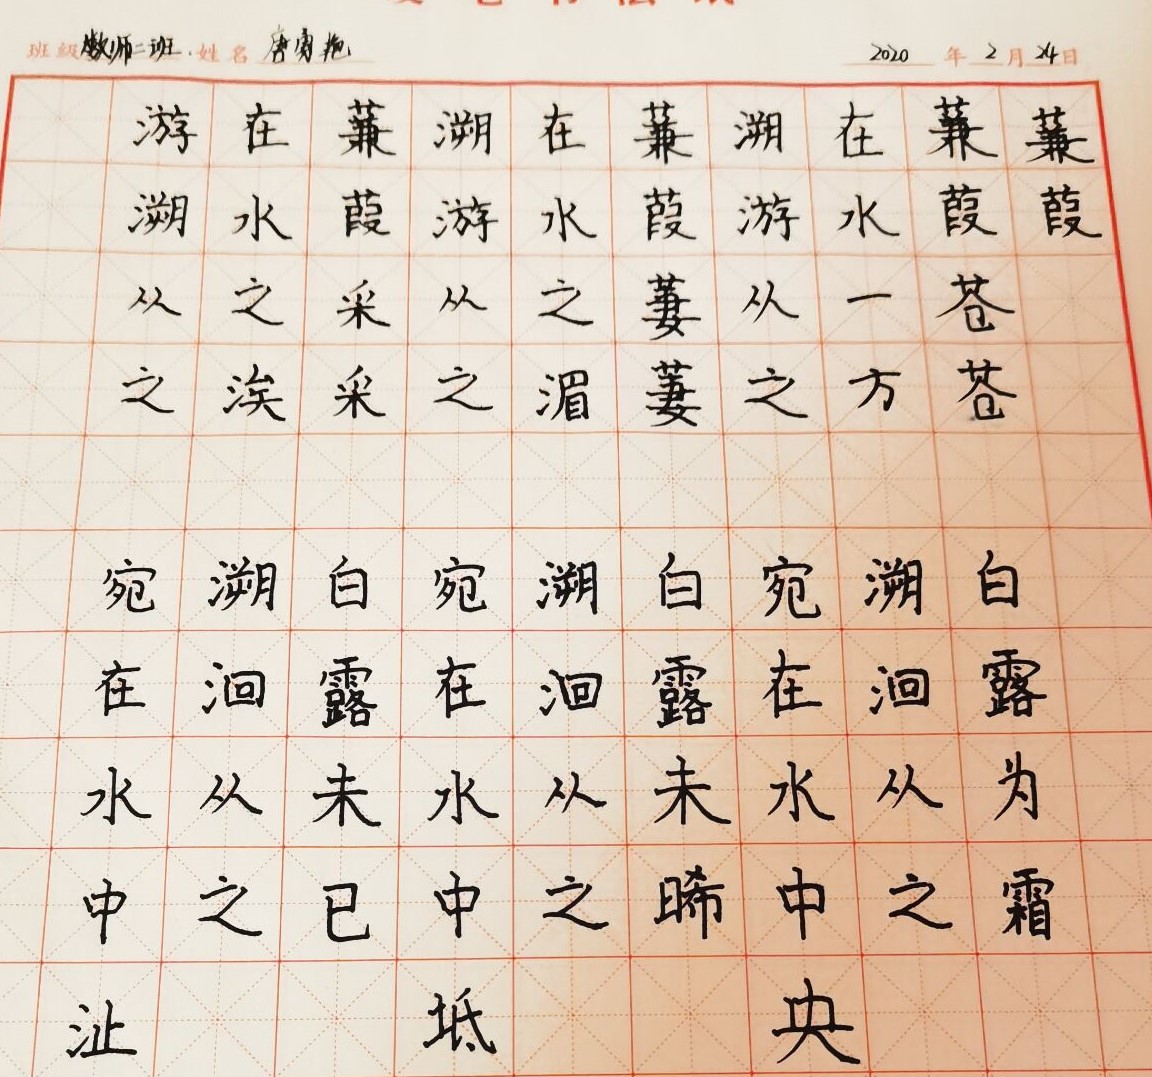 班级 教师二班 姓名 唐
2020年2月24日
蒹葭
蒹葭苍苍 白露为霜
在水一方 溯洄从之
溯游从之 宛在水中央
蒹葭萋萋 白露未晞
在水之湄 溯洄从之
溯游从之 宛在水中坻
蒹葭采采 白露未已
在水之涘 溯洄从之
溯游从之 宛在水中沚